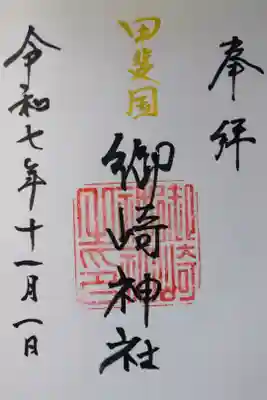 奉拝
甲斐国
御崎神社
令和七年十一月一日